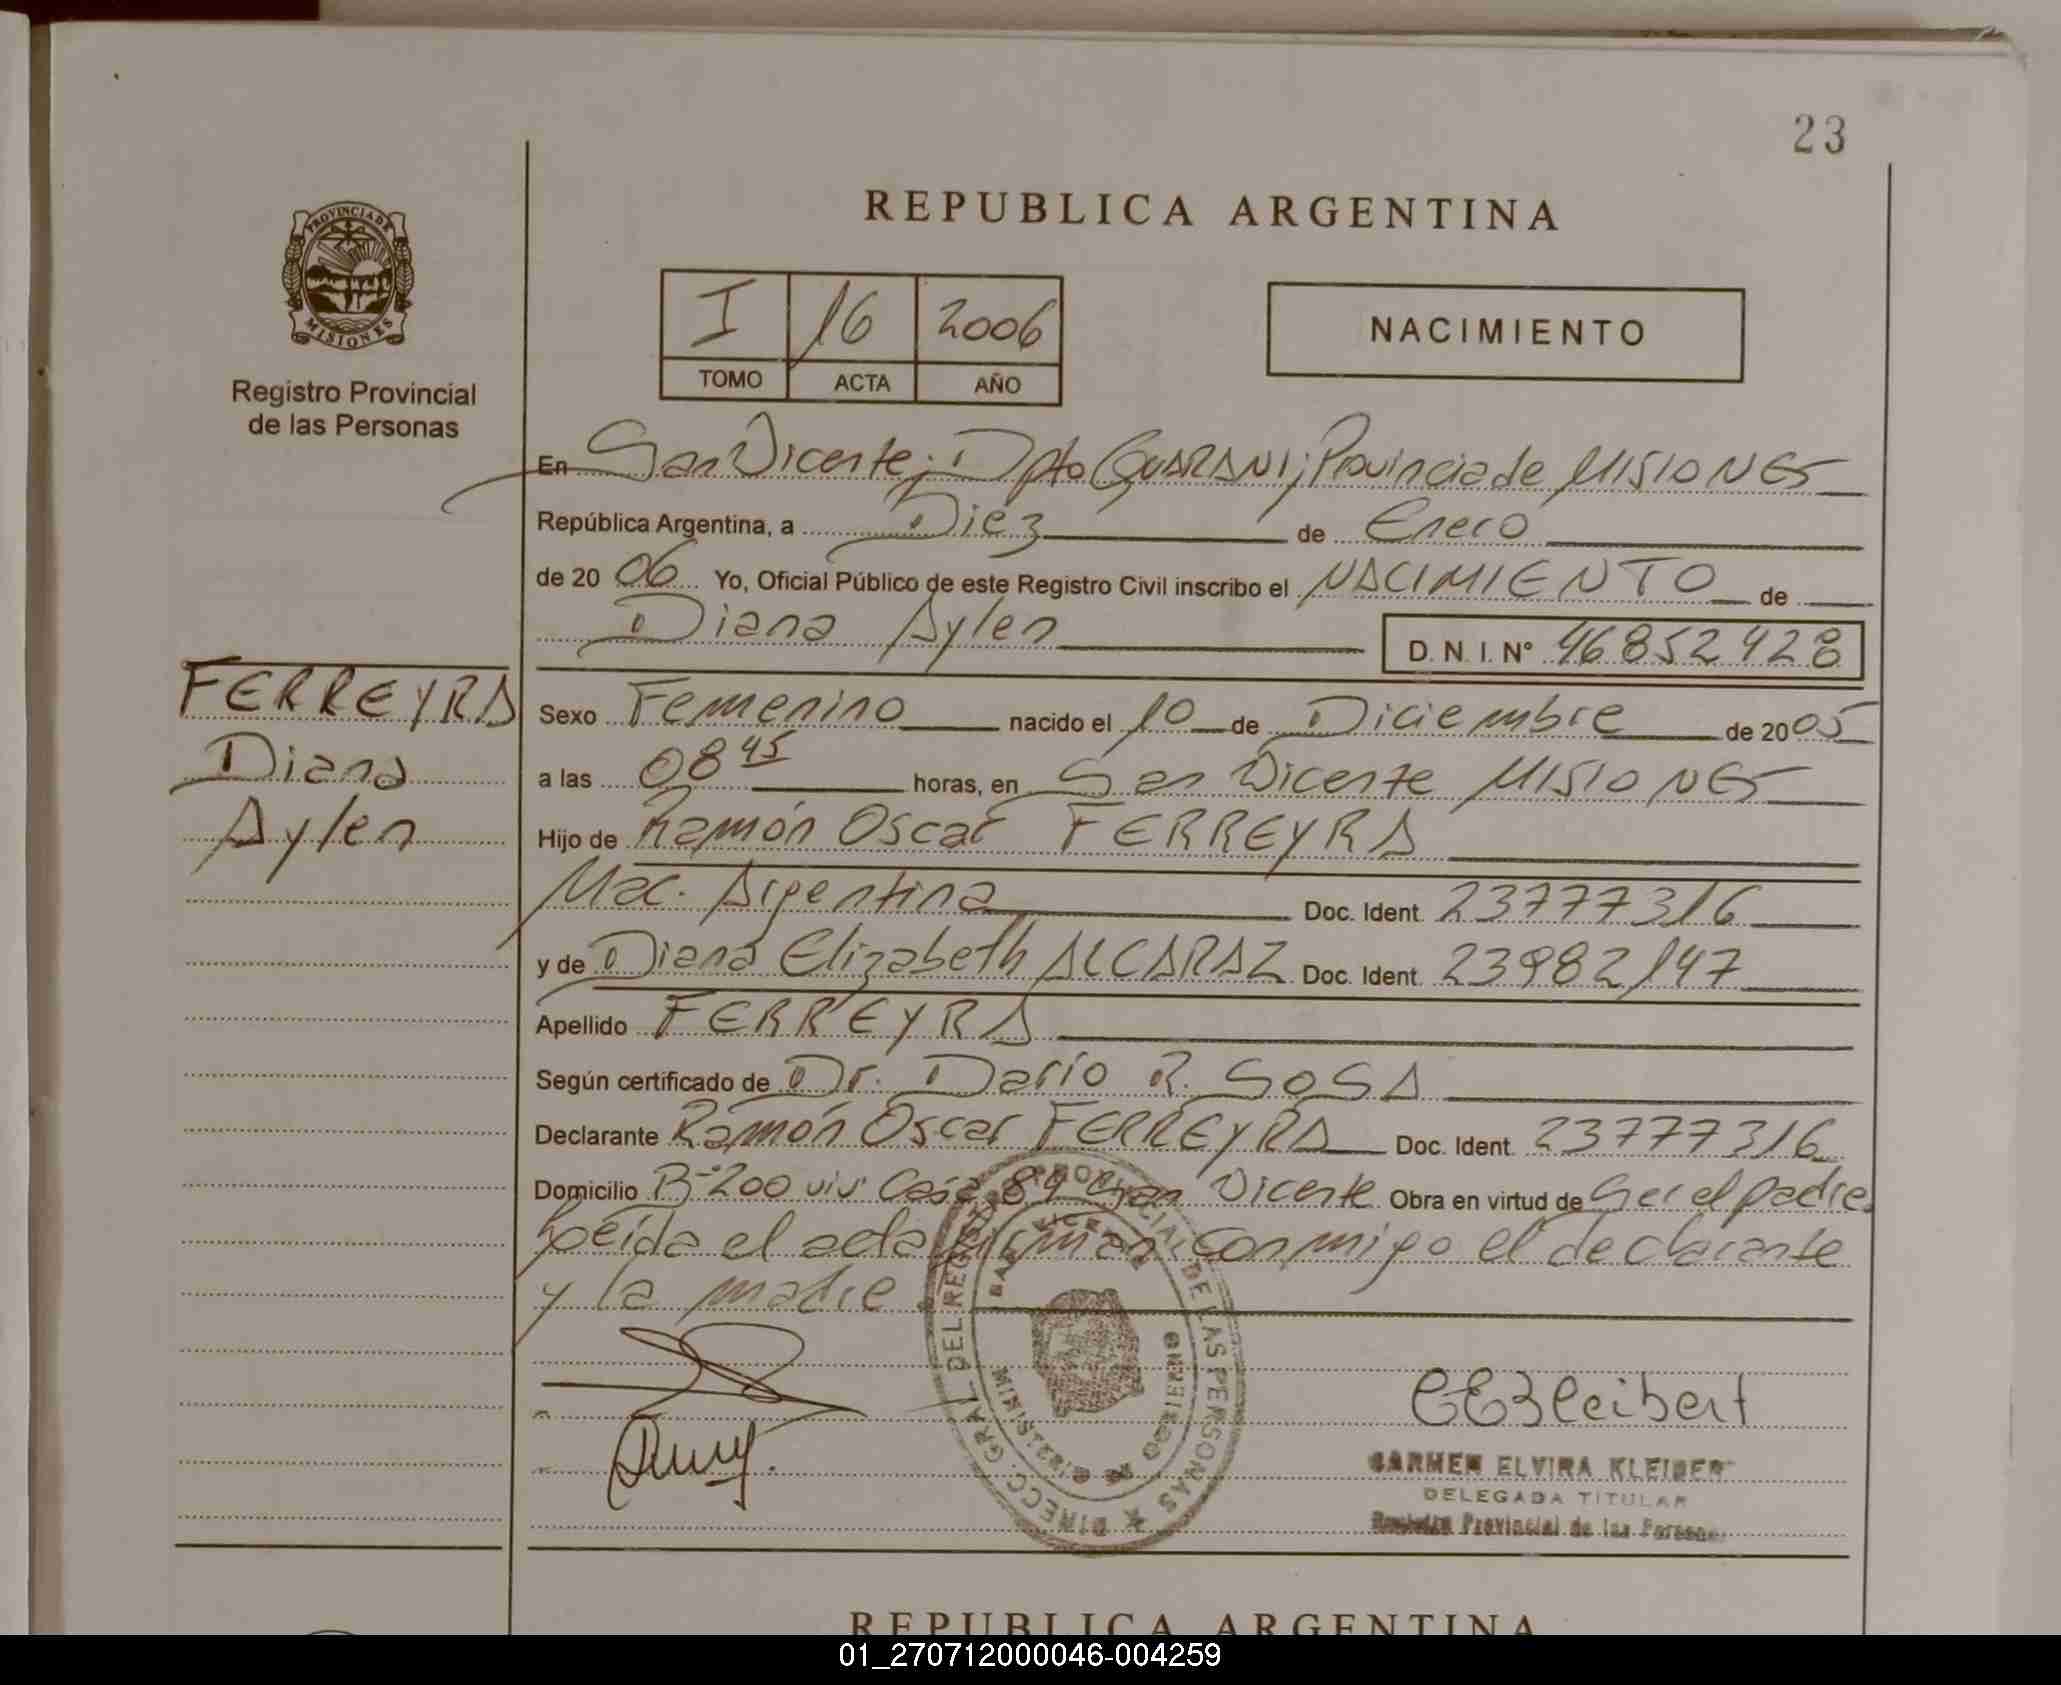 23
REPUBLICA ARGENTINA
PROVINCIA DE
MISIONES
Registro Provincial
de las Personas
I 16 2006
TOMO ACTA AÑO
NACIMIENTO
En San Vicente; Dpto GUARANI; Provincia de MISIONES
República Argentina, a Diez de Enero
de 2006 Yo, Oficial Público de este Registro Civil inscribo el NACIMIENTO de
Diana Aylen D. N. I. N° 46852428
FERREYRA
Diana
Aylen
Sexo Femenino nacido el 10 de Diciembre de 2005
a las 08 45 horas, en San Vicente MISIONES
Hijo de Ramón Oscar FERREYRA
Nac. Argentina Doc. Ident. 23777316
y de Diana Elizabeth ALCARAZ Doc. Ident. 23982147
Apellido FERREYRA
Según certificado de Dr. Darío R. SOSA
Declarante Ramón Oscar FERREYRA Doc. Ident. 23777316
Domicilio B-200 viv. Casa 84 San Vicente Obra en virtud de Ser el padre
Leida el acta firman conmigo el declarante
y la madre
DIRECC. GRAL. DEL REGISTRO PROVINCIAL DE LAS PERSONAS
SAN VICENTE
MINISTERIO DE GOBIERNO
CEKleibert
CARMEN ELVIRA KLEIBER
DELEGADA TITULAR
Registro Provincial de las Personas
REPUBLICA ARGENTINA
01_270712000046-004259